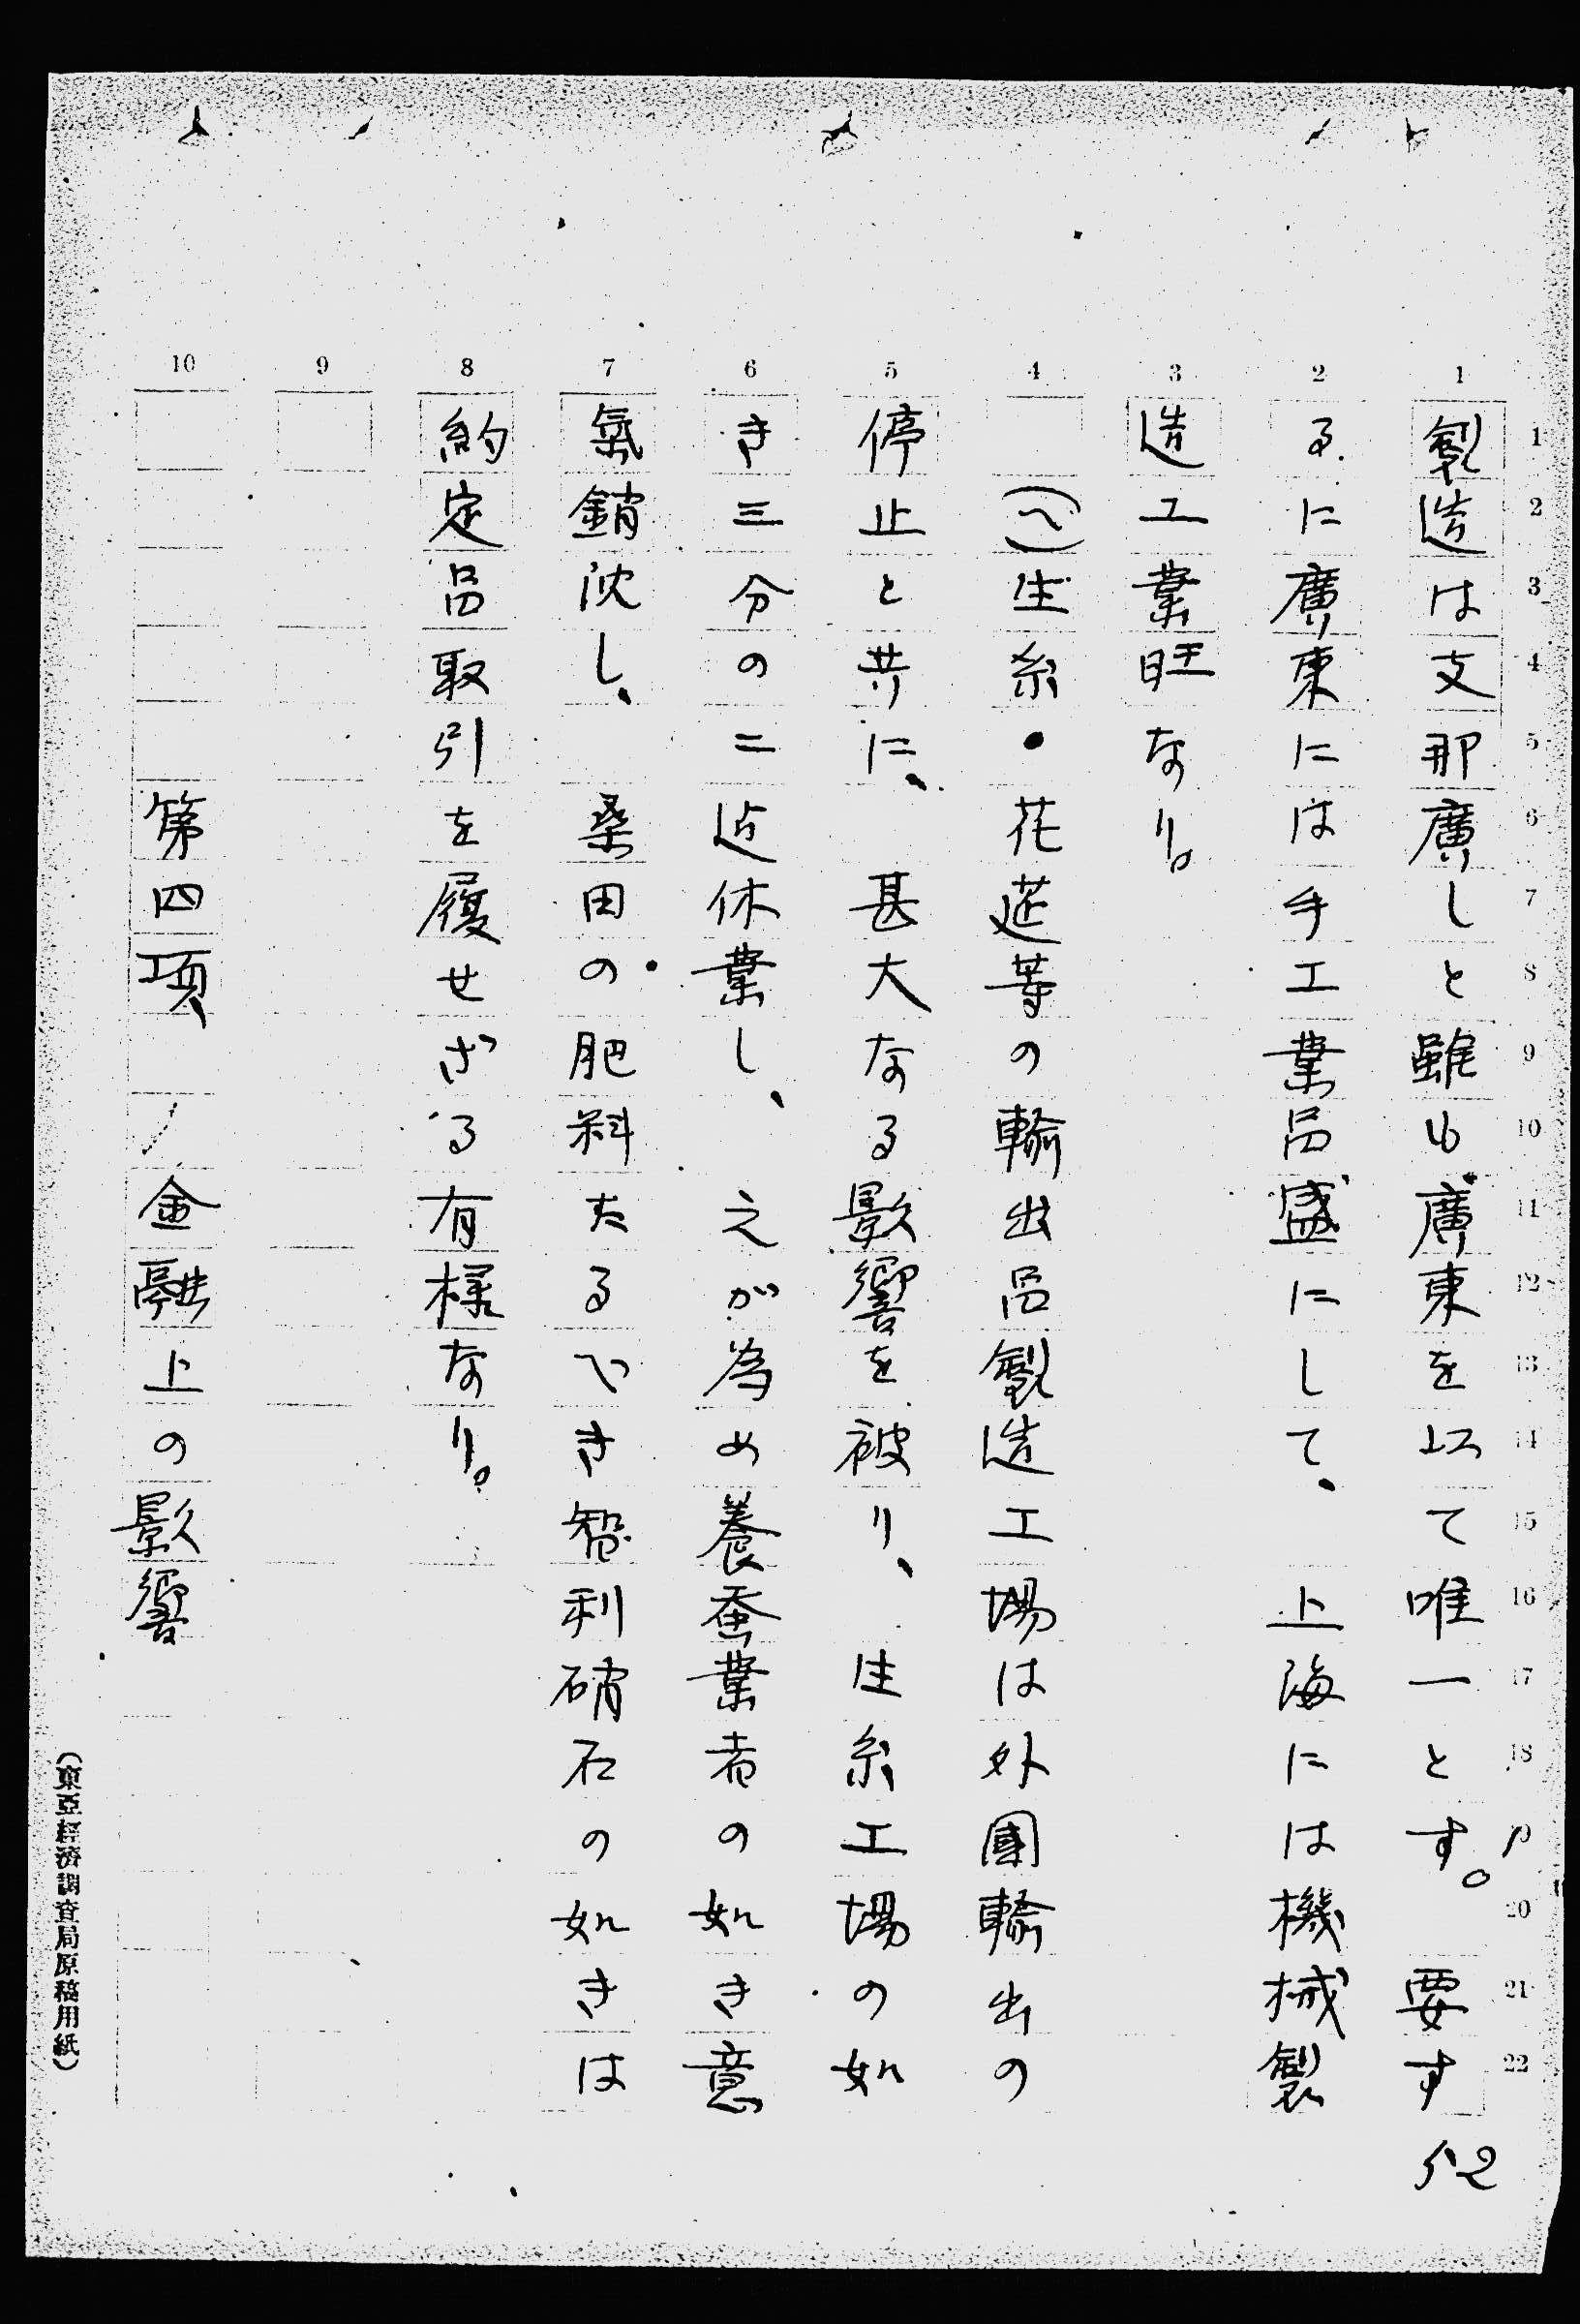 製造は支那廣しと雖も廣東を以て唯一とす。要す
るに廣東には手工業品盛にして、上海には機械製
造工業旺なり。
(へ)生糸・花莚等の輸出品製造工場は外國輸出の
停止と共に、甚大なる影響を被り、生糸工場の如
き三分の二迠休業し、之が為め養蚕業者の如き意
氣銷沈し、桑田の肥料たるべき智利硝石の如きは
約定品取引を履せざる有様なり。
第四項 金融上の影響
(東亞經濟調查局原稿用紙)
52
1 2 3 4 5 6 7 8 9 10
1 2 3 4 5 6 7 8 9 10 11 12 13 14 15 16 17 18 19 20 21 22